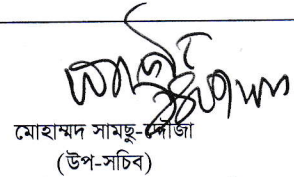 মোহাম্মদ সামছু-দ্দৌজা
(উপ-সচিব)